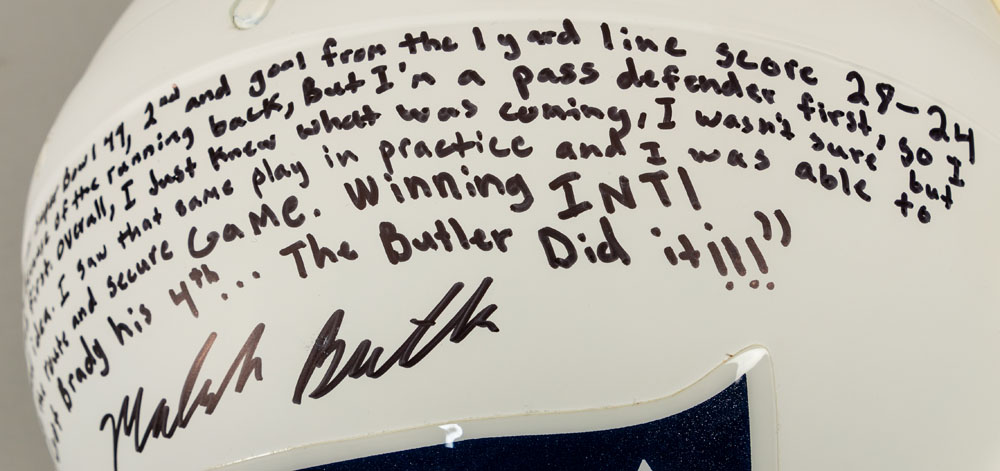 Super Bowl 49, 2nd and goal from the 1 yard line score 28-24
of the running back, But I'm a pass defender first, so I
first. Overall, I Just knew what was coming, I wasn't sure but
idea. I saw that same play in practice and I was able to
route and secure GaMe. Winning INT!
Brady his 4th... The Butler Did it!!!"
Malcolm Butler